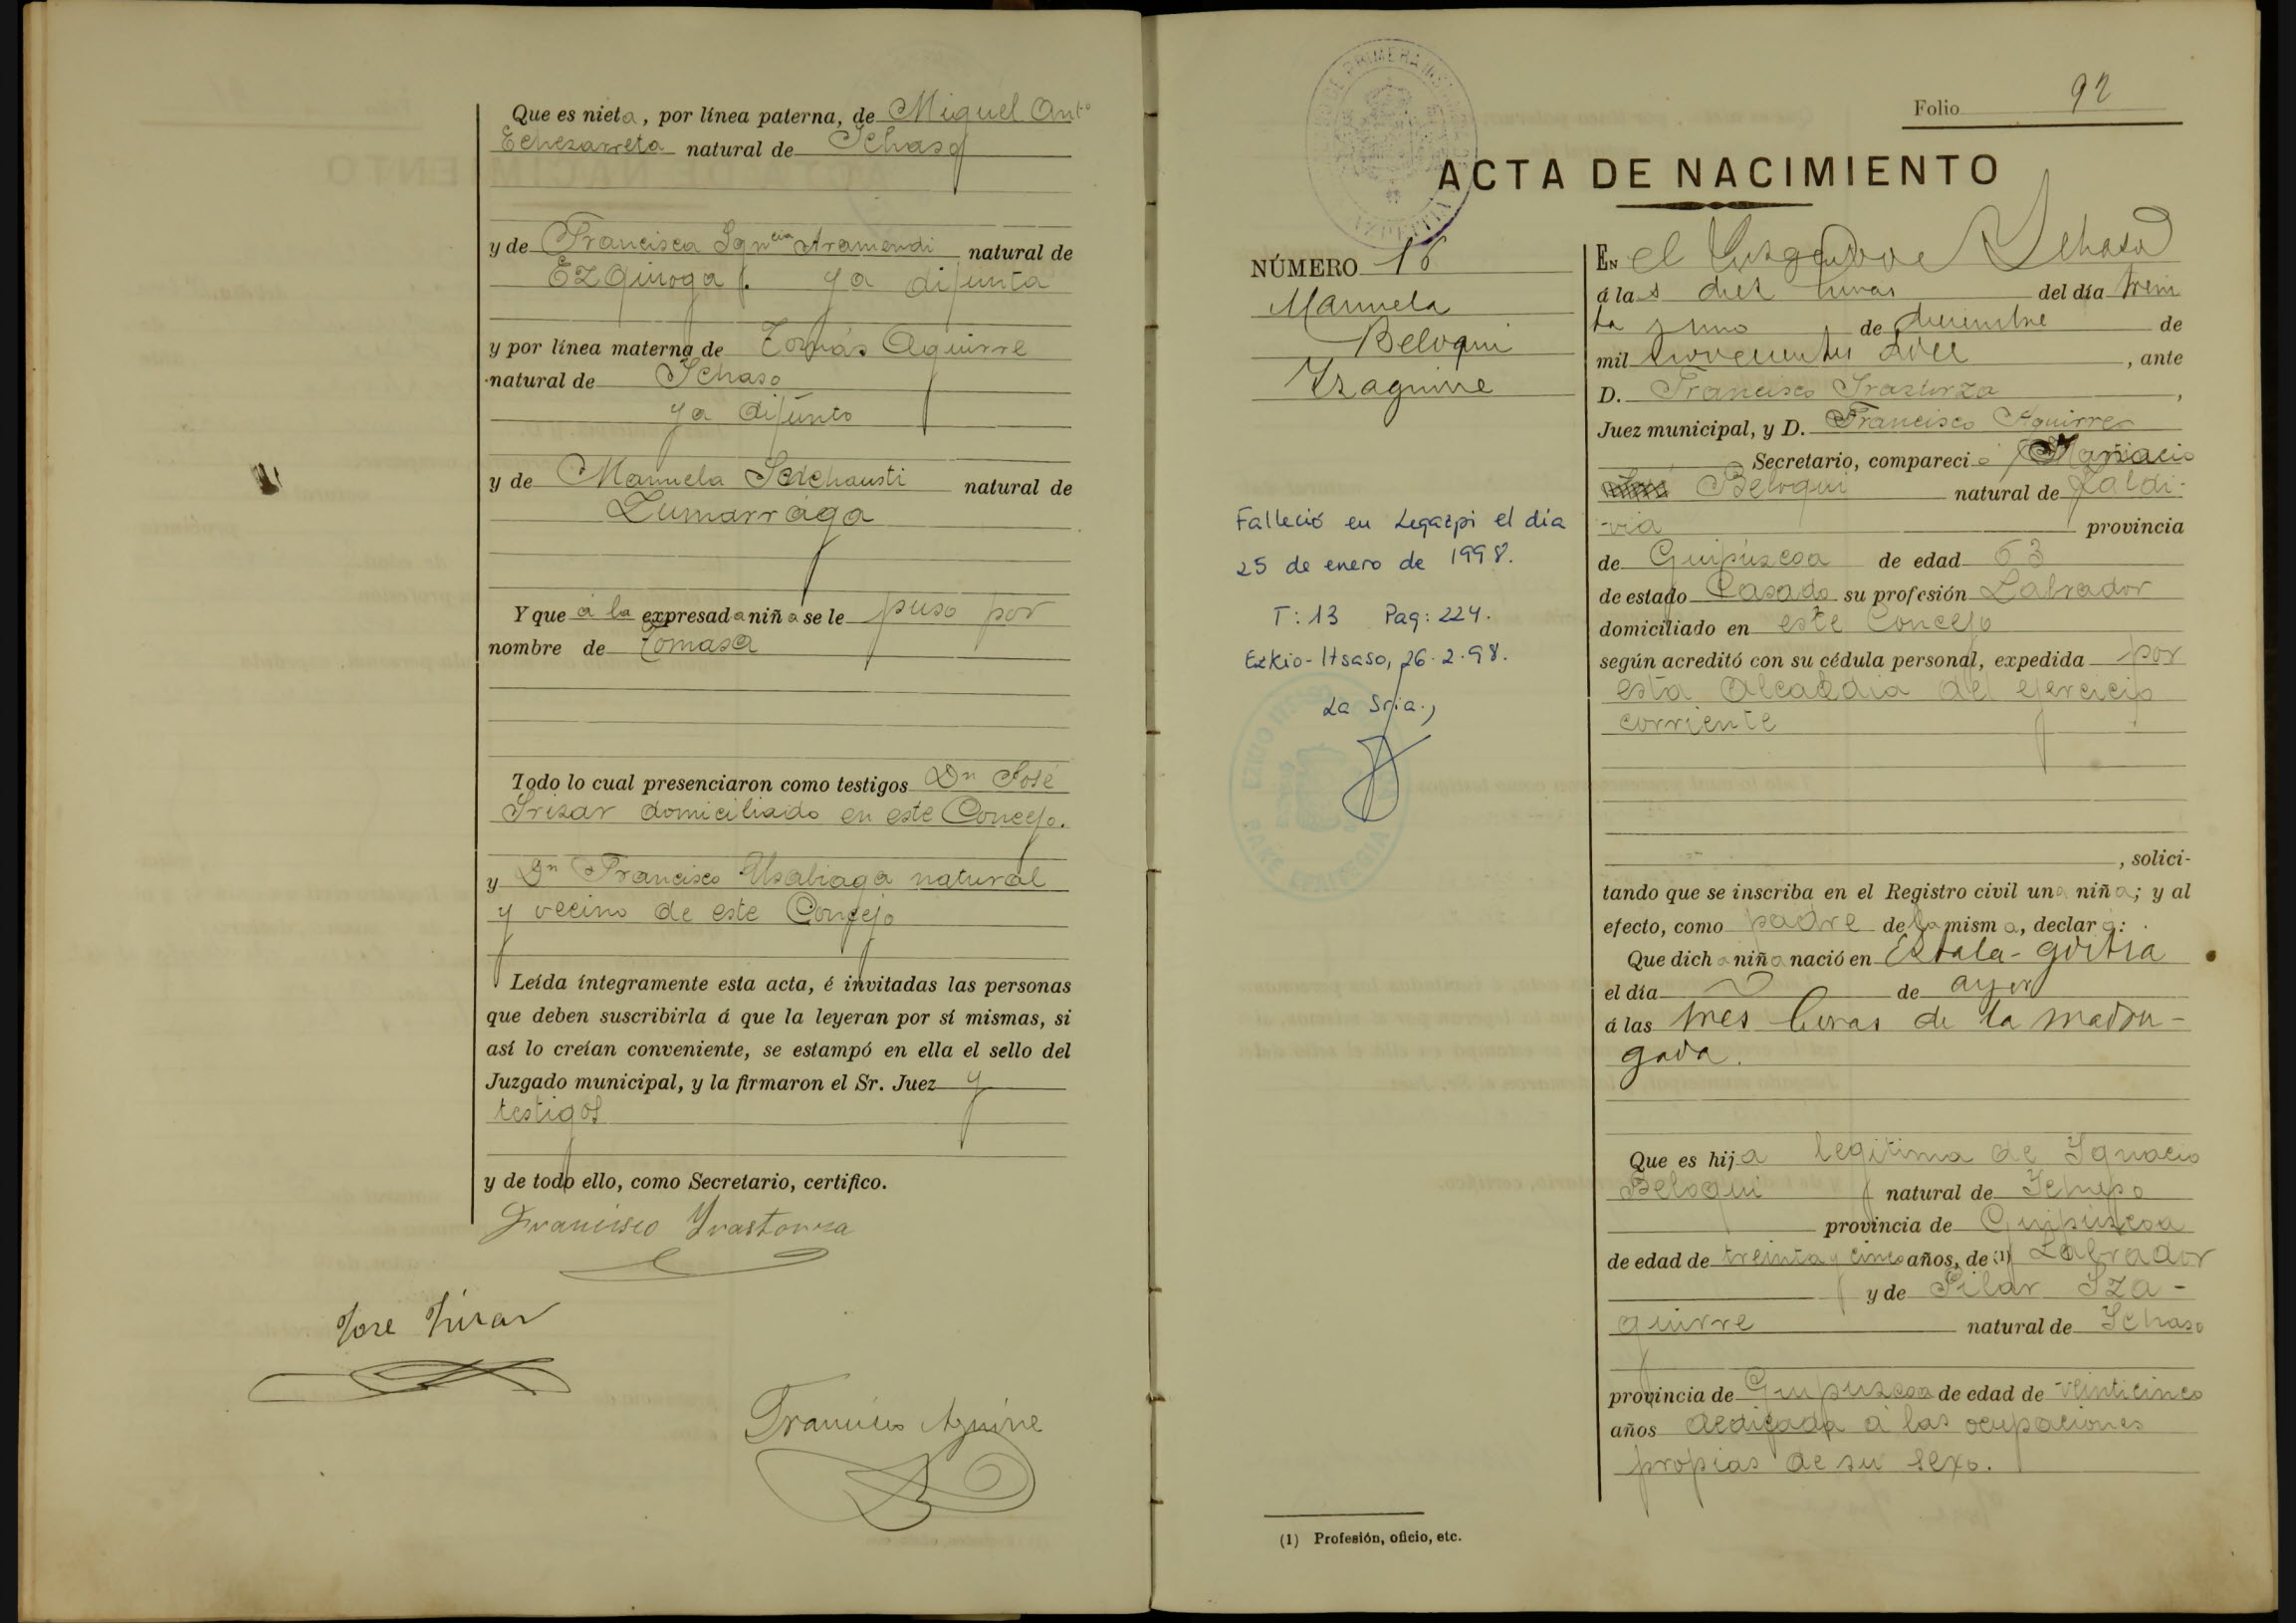 Que es nieta, por línea paterna, de Miguel Antº
Echezarreta natural de Ichaso
y de Francisca Igncia Aramendi natural de
Ezquioga. ya difunta
y por línea materna de Tomás Aguirre
natural de Ichaso
ya difunto
y de Manuela natural de
Zumarraga
Y que á la expresada niña se le puso por
nombre de Tomasa
Todo lo cual presenciaron como testigos Dn José
Irizar domiciliado en este Concejo.
y Dn Francisco Usabiaga natural
y vecino de este Concejo
Leída íntegramente esta acta, é invitadas las personas
que deben suscribirla á que la leyeran por sí mismas, si
así lo creían conveniente, se estampó en ella el sello del
Juzgado municipal, y la firmaron el Sr. Juez y
testigos
y de todo ello, como Secretario, certifico.
Francisco Irastorza
Jose Irizar
Francisco Aguirre
Folio 92
ACTA DE NACIMIENTO
NÚMERO 16
Manuela
Beloqui
Izaguirre
Falleció en Legazpi el día
25 de enero de 1998.
T: 13 Pag: 224.
Ezkio-Itsaso, 26.2.98.
La Sria.,
En el Juzgado de Ichaso
á las diez horas del día trein
ta y uno de diciembre de
mil novecientos doce, ante
D. Francisco Irastorza,
Juez municipal, y D. Francisco Aguirre
Secretario, compareció
Beloqui natural de Zaldi-
via provincia
de Guipúzcoa de edad 63
de estado Casado su profesión Labrador
domiciliado en este Concejo
según acreditó con su cédula personal, expedida por
esta Alcaldia del ejercicio
corriente
, solici-
tando que se inscriba en el Registro civil una niña; y al
efecto, como padre de la misma, declaró:
Que dicha niña nació en
el día de ayer
á las tres horas de la madru-
gada.
Que es hija legitima de Ignacio
Beloqui natural de Ichaso
provincia de Guipúzcoa
de edad de treinta y cinco años, de (1) Labrador
y de Pilar Iza-
guirre natural de Ichaso
provincia de Guipuzcoa de edad de veinticinco
años dedicada á las ocupaciones
propias de su sexo.
(1) Profesión, oficio, etc.